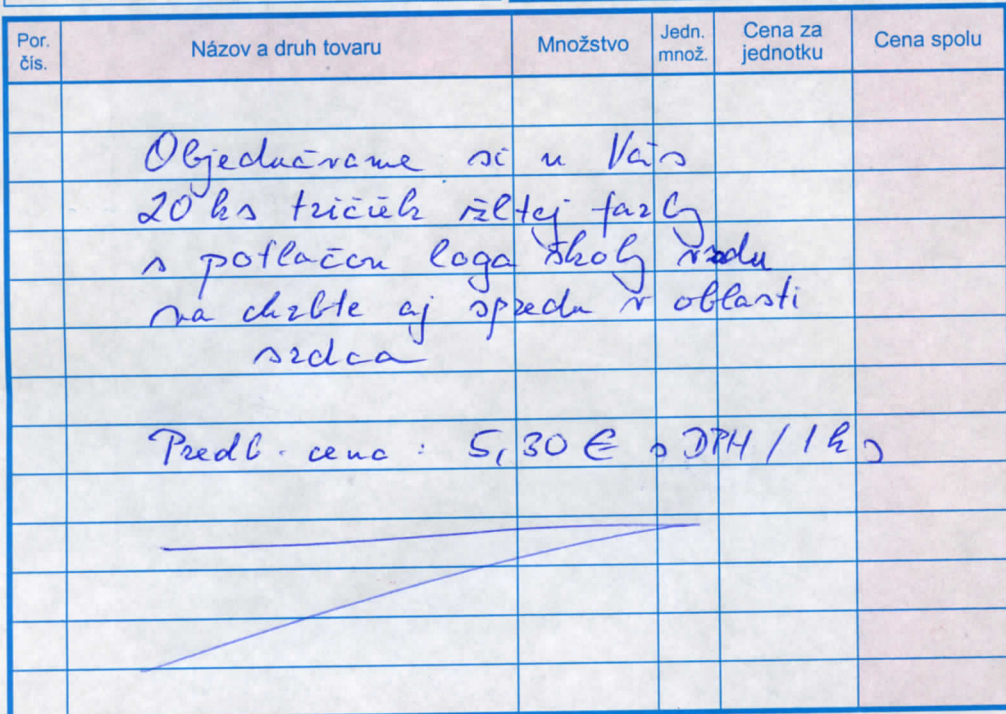 Por. čís.
Názov a druh tovaru
Množstvo
Jedn. množ.
Cena za jednotku
Cena spolu
Objednávame si u Vás
20 ks tričiek žltej farby
s potlačou loga školy vzadu
na chrbte aj spredu v oblasti
srdca
Predb. cena : 5,30 € s DPH / 1 ks